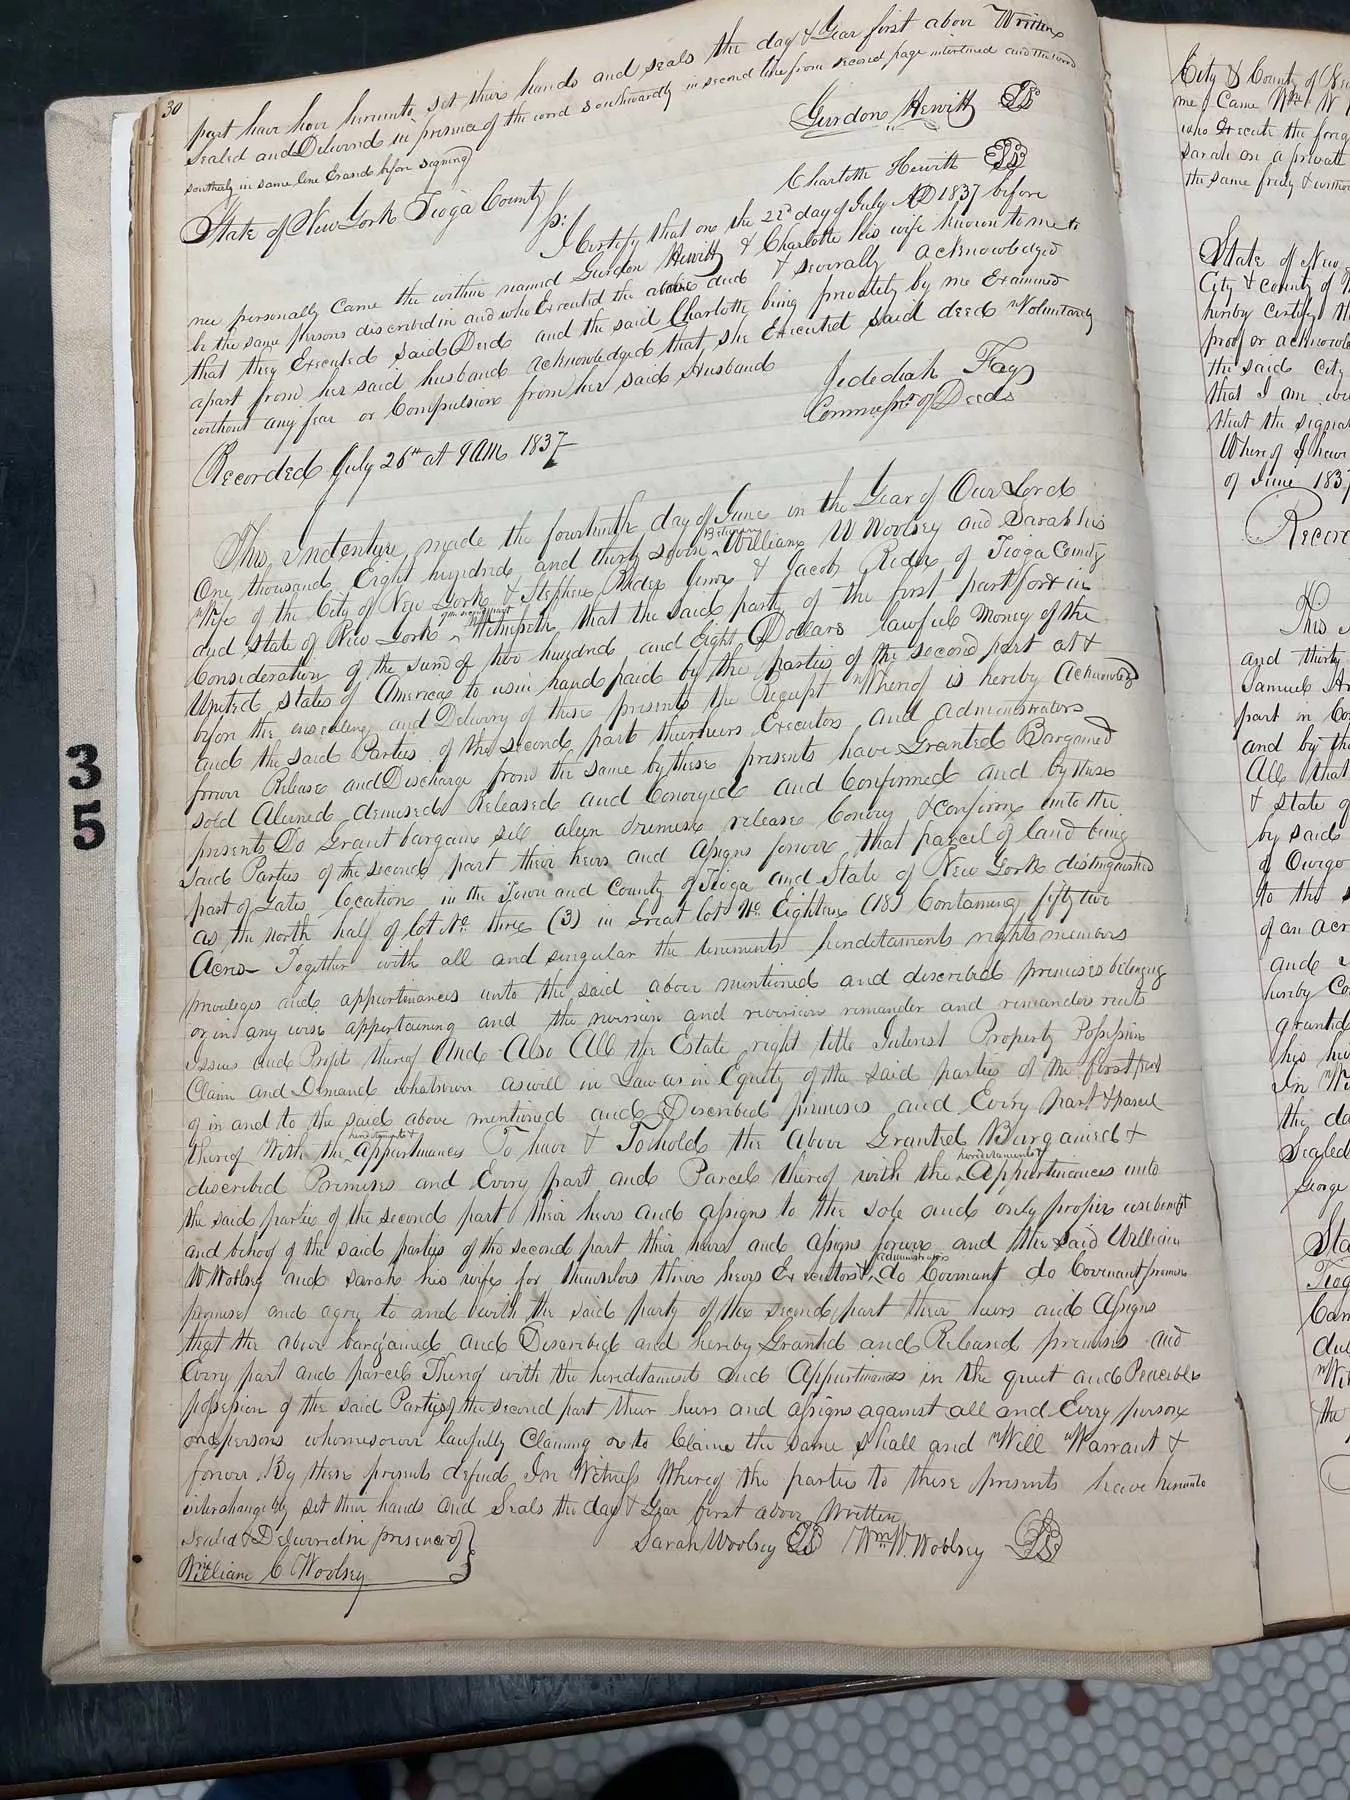 30
part have here hereunto set their hands and seals the day & year first above Written
Sealed and Delivered in presence of the word southwardly in second line from second page interlined and the word
southerly in same line Erased before signing
Gurdon Hewitt LS
Charlotte Hewitt LS
State of New York Tioga County
ss: I Certify that on the 22d day of July AD 1837 before
me personally came the within named Gurdon Hewitt & Charlotte his wife known to me to
be the same persons described in and who Executed the above deed & severally acknowledged
that they Executed said Deed and the said Charlotte being privately by me Examined
apart from her said husband acknowledged that she Executed said deed Voluntarily
without any fear or Compulsion from her said Husband
Jedediah Fay
Commissr of Deeds
Recorded July 26th at 9 AM 1837
This Indenture made the fourteenth day of June in the Year of Our Lord
One thousand Eight hundred and thirty seven Between William W Woolsey and Sarah his
Wife of the City of New York & Stephen Rider Junr & Jacob Rider of Tioga County
and State of New York Witnesseth that the said party of the first part for & in
Consideration of the sum of two hundred and Eight Dollars lawful Money of the
United States of America to us in hand paid by the parties of the second part at &
before the ensealing and Delivery of these presents the Receipt Whereof is hereby Acknowledged
and the said Parties of the second part their heirs Executors and administrators
forever Release and Discharge from the same by these presents have Granted Bargained
sold Aliened demised Released and Conveyed and Confirmed and by these
presents Do Grant bargain sell alien demise release Convey & Confirm unto the
said Parties of the second part their heirs and assigns forever that parcel of land being
part of Gates location in the Town and County of Tioga and State of New York distinguished
as the north half of lot No three (3) in Great lot No Eighteen (18) Containing fifty two
Acres Together with all and singular the tenements hereditaments rights members
privileges and appurtenances unto the said above mentioned and described premises belonging
or in any wise appertaining and the reversion and reversions remainder and remainders rents
issues and Profits thereof And Also All the Estate right title Interest Property Possession
Claim and Demand whatsoever as well in Law as in Equity of the said parties of the first part
of in and to the said above mentioned and Described premises and Every part & parcel
thereof With the hereditaments & Appurtenances To have & To hold the above Granted Bargained &
described Premises and Every part and Parcel thereof with the hereditaments & Appurtenances unto
the said parties of the second part their heirs and assigns to the sole and only proper use benefit
and behoof of the said parties of the second part their heirs and Assigns forever and the said William
W Woolsey and Sarah his wife for themselves their heirs Executors & administrators do Covenant do Covenant promise
promise and agree to and with the said party of the second part their heirs and Assigns
that the above bargained and Described and hereby Granted and Released premises and
Every part and parcel Thereof with the hereditaments and Appurtenances in the quiet and Peaceable
possession of the said Parties of the second part their heirs and assigns against all and Every person
and persons whomsoever lawfully Claiming or to Claim the same shall and Will Warrant &
forever By these presents defend In Witness Whereof the parties to these presents have hereunto
interchangeably set their hands and Seals the day & Year first above Written
Sealed & Delivered in presence of
Sarah Woolsey LS Wm W. Woolsey LS
William C Woolsey
35
City & County of New
me Came
who execute the
Sarah on a private
the same freely & without
State of New
City & County of
hereby certify
proof or acknowle
the said City
that I am
that the signat
Whereof I have
of June 1837
Record
This
and thirty
Samuel
part in Con
and by the
All that
& State of
by said
of Owego
to the
of an acre
and
hereby Co
granted
his heirs
In Wi
the da
Sealed
George
Sta
Tiog
Cam
due
Wi
the